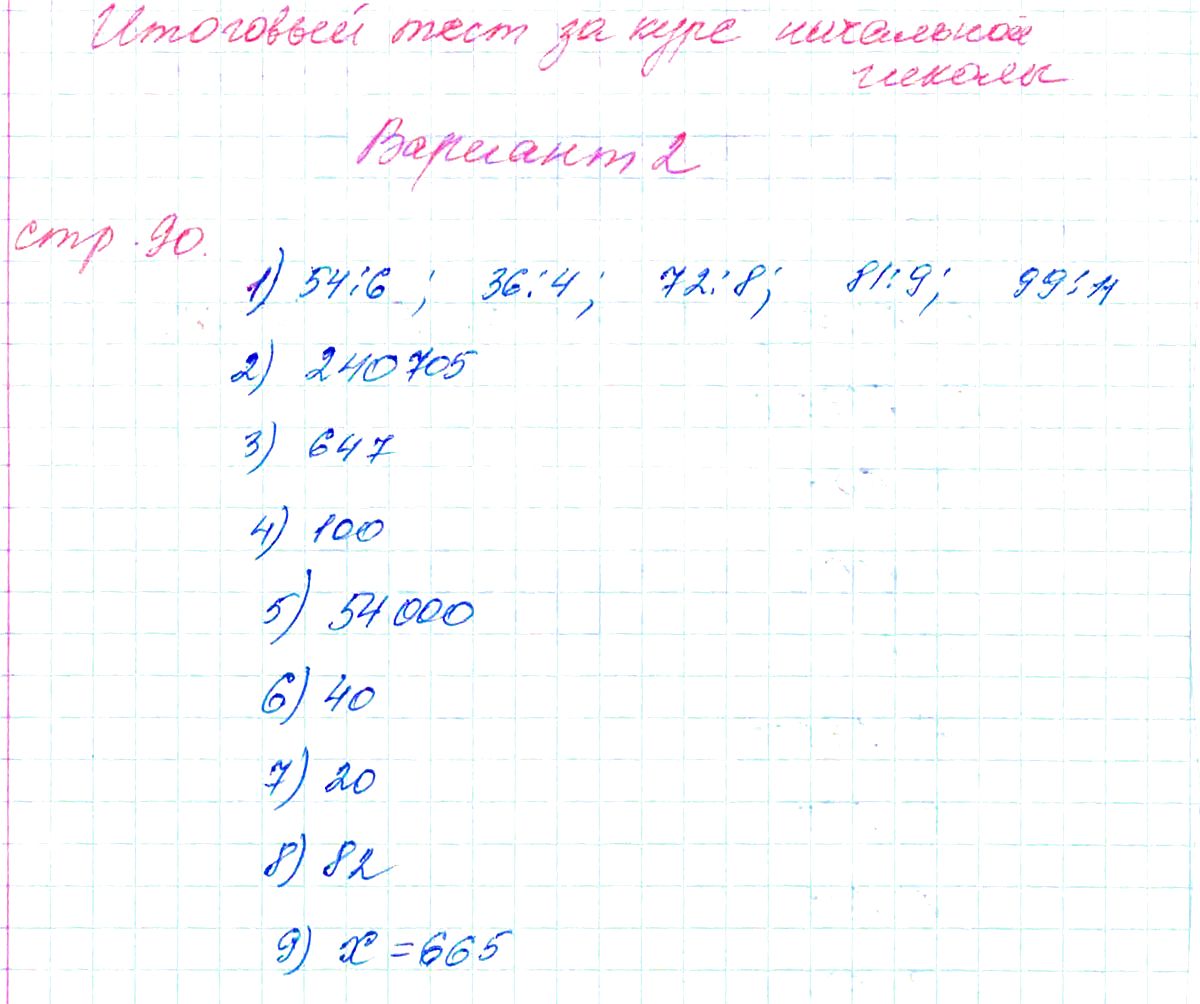 Итоговый тест за курс начальной
школы
Вариант 2
стр. 90.
1) 54:6 ; 36:4; 72:8; 81:9; 99:11
2) 240705
3) 647
4) 100
5) 54000
6) 40
7) 20
8) 82
9) x = 665